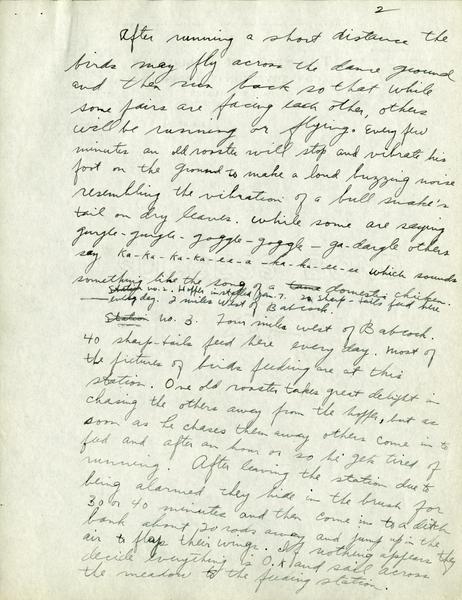 2
After running a short distance the
birds may fly across the dance ground
and then run back so that while
some pairs are facing each other, others
will be running or flying. Every few
minutes an old rooster will stop and vibrate his
foot on the ground to make a loud buzzing noise
resembling the vibration of a bull snake's
tail on dry leaves. While some are saying
gurgle-gurgle-goggle-goggle-ga-dargle others
say ka-ka-ka-ka-ee-a-ka-ka-ee-ee which sounds
something like the song of a tame domestic chicken.
Station no. 2. Hopper installed Jan. 7. 20 sharp-tails feed here
every day. 2 miles west of Babcock.
Station no. 3. Four miles west of Babcock.
40 sharp-tails feed here every day. Most of
the pictures of birds feeding are at this
station. One old rooster takes great delight in
chasing the others away from the hopper, but as
soon as he chases them away others come in to
feed and after an hour or so he gets tired of
running. After leaving the station due to
being alarmed they hide in the brush for
30 or 40 minutes and then come in to a ditch
bank about 20 rods away and jump up in the
air to flap their wings. If nothing appears they
decide everything is O.K and sail across
the meadow to the feeding station.